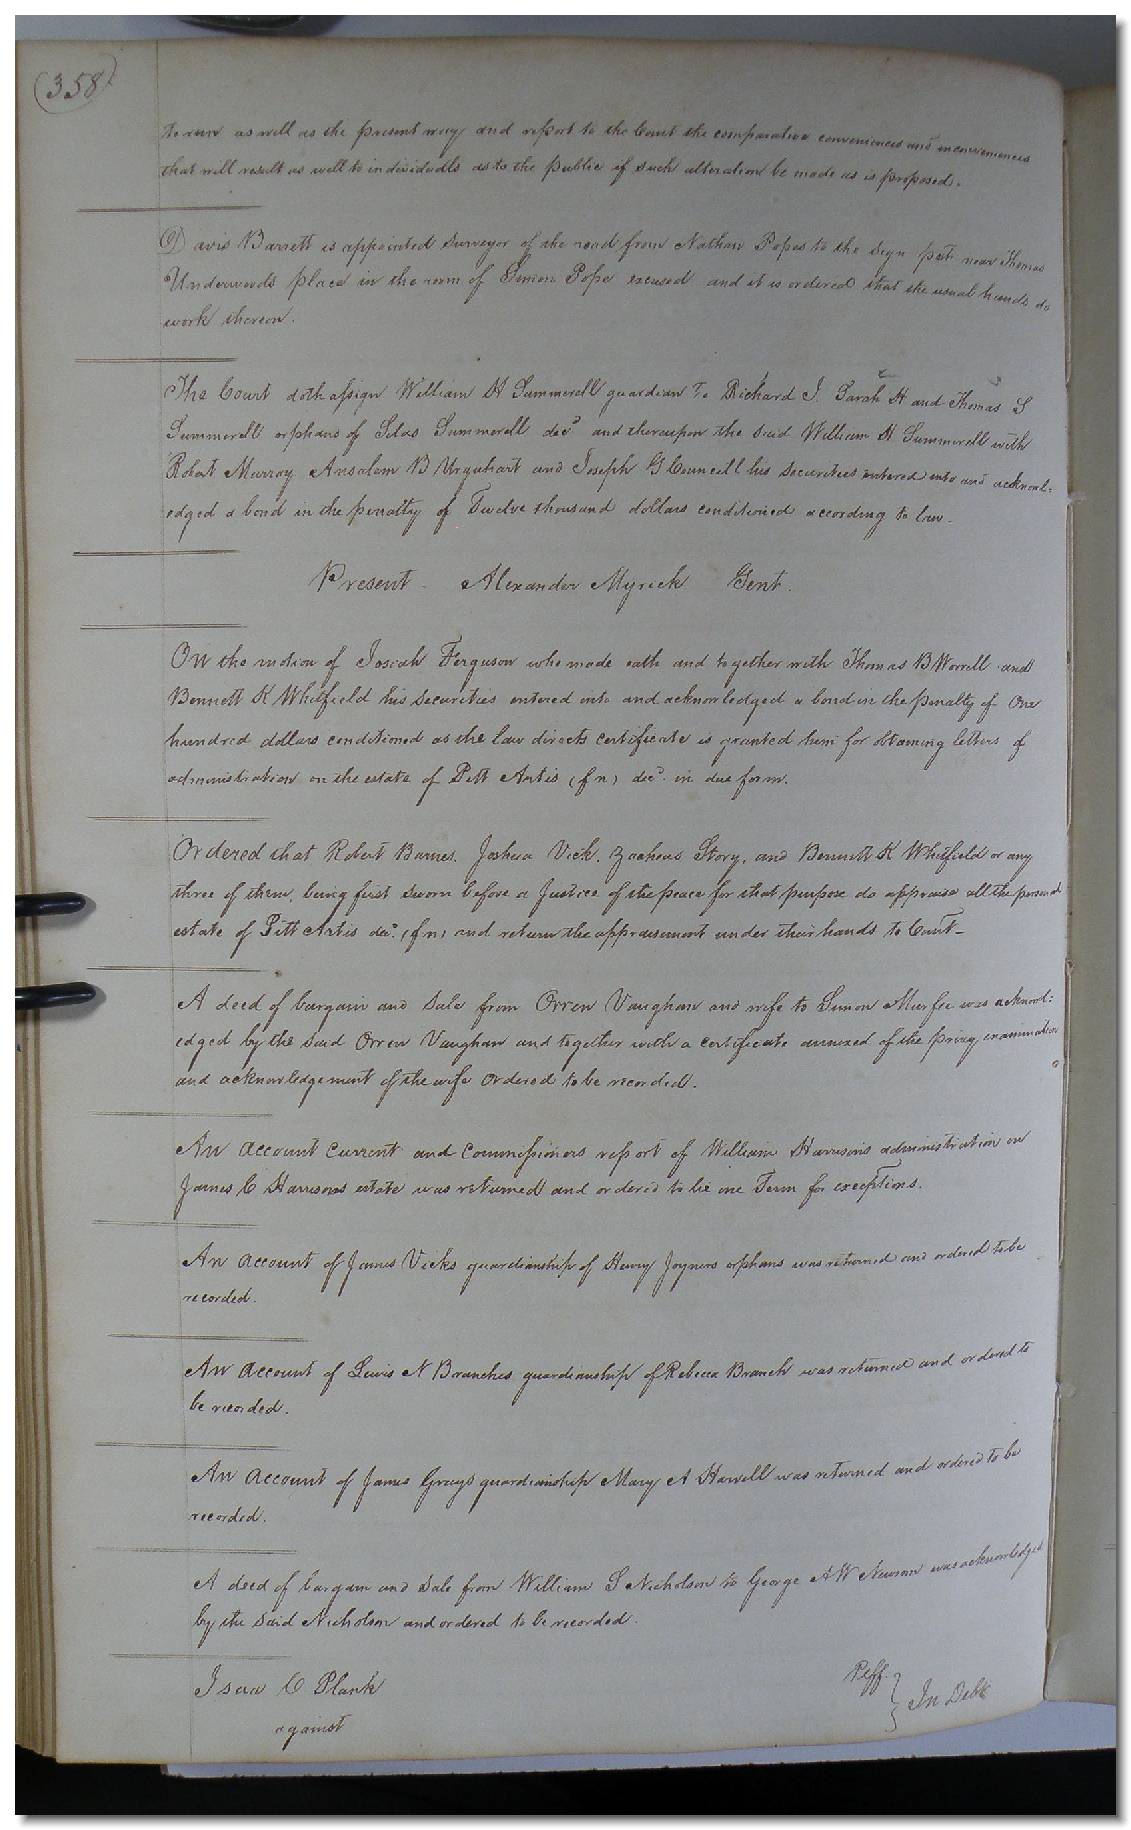 (358)
to run as well as the present way and report to the Court the comparative conveniences and inconveniences
that will result as well to individuals as to the public if such alteration be made as is proposed.
Davis Barrett is appointed Surveyor of the road from Nathan Popes to the Sign post near Thomas
Underwoods place in the room of Simon Pope excused and it is ordered that the usual hands do
work thereon.
The Court doth assign William H Summerell guardian to Richard J. Sarah H and Thomas S
Summerell orphans of Silas Summerell decd and thereupon the said William H Summerell with
Robert Murray Ansalom B Urquhart and Joseph G Councill his securities entered into and acknowl=
edged a bond in the penalty of Twelve thousand dollars conditioned according to law.
Present - Alexander Myrick Gent.
On the motion of Josiah Ferguson who made oath and together with Thomas B Worrell and
Bennett K Whitfield his securities entered into and acknowledged a bond in the penalty of One
hundred dollars conditioned as the law directs certificate is granted him for obtaining letters of
administration on the estate of Pitt Artis (fn) decd. in due form.
Ordered that Robert Barnes, Joshua Vick, Zacheus Story, and Bennett K Whitfield or any
three of them, being first sworn before a Justice of the peace for that purpose do appraise all the personal
estate of Pitt Artis decd. (fn) and return the appraisement under their hands to Court-
A deed of bargain and Sale from Orren Vaughan and wife to Simon Murfee was acknowl=
edged by the said Orren Vaughan and together with a certificate annexed of the privy examination
and acknowledgement of the wife Ordered to be recorded.
An account current and commissioners report of William Harrisons administration on
James C Harrisons estate was returned and ordered to lie one Term for exceptions.
An account of James Vicks guardianship of Henry Joyners orphans was returned and ordered to be
recorded.
An account of Lewis N Branches guardianship of Rebecca Branch was returned and ordered to
be recorded.
An account of James Grays guardianship Mary A Harvell was returned and ordered to be
recorded.
A deed of bargain and Sale from William S Nicholson to George A W Newsom was acknowledged
by the said Nicholson and ordered to be recorded.
Isaa C Plank Peff. } In Debt
against